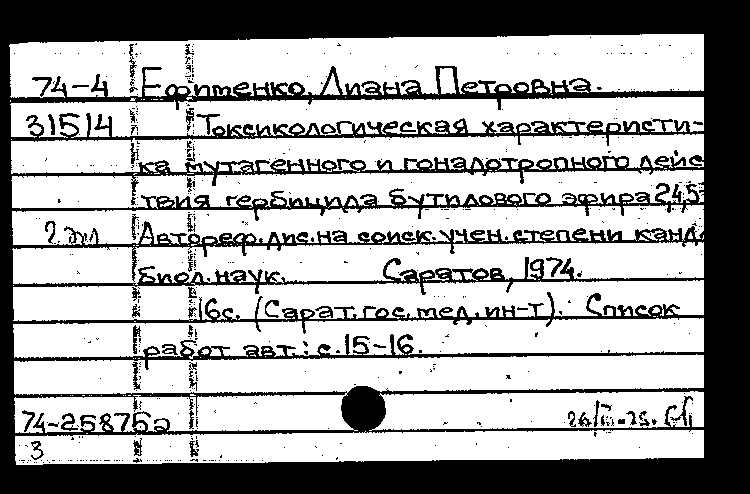 74-4 Ефименко, Лиана Петровна.
31514 Токсикологическая характеристи-
ка мутагенного и гонадотропного дейс
твия гербицида бутилового эфира 2,4,5
2 экз Автореф. дис. на соиск. учен. степени канд.
биол. наук. Саратов, 1974.
16с. (Сарат. гос. мед. ин-т). Список
работ авт.: с.15-16.
74-25875а
3